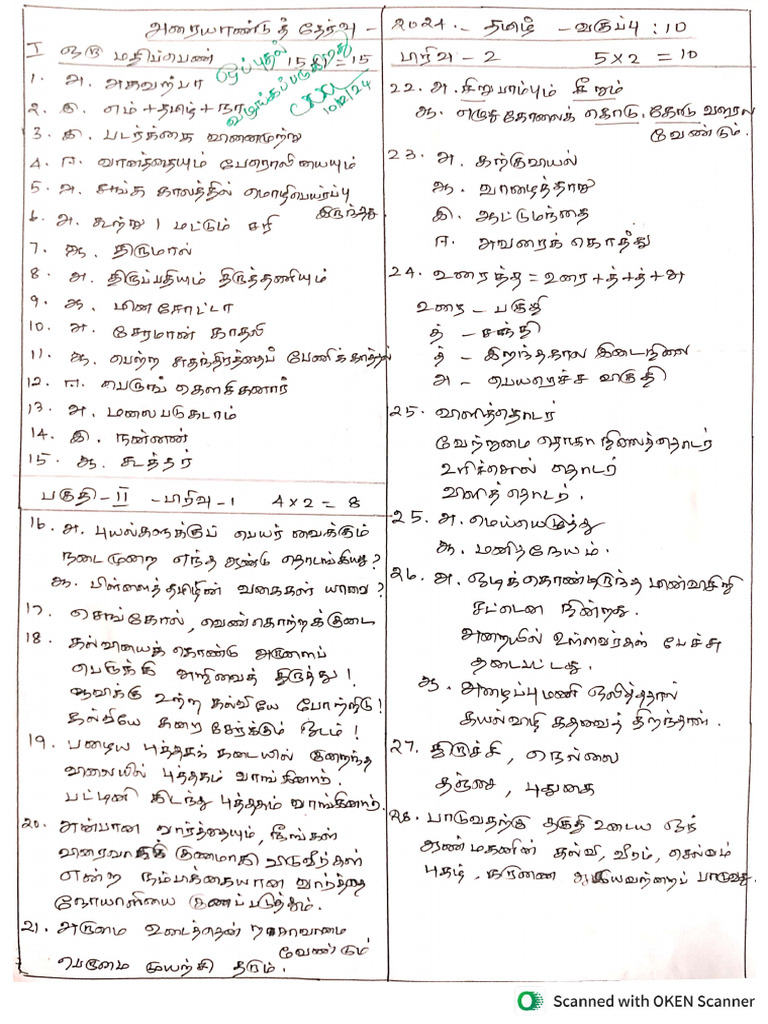 அரையாண்டுத் தேர்வு - 2024 - தமிழ் - வகுப்பு : 10
I ஒரு மதிப்பெண் 15x1 = 15
ஒப்புதல்
வழங்கப்படுகிறது
10/12/24
1. அ. அகவற்பா
2. இ. எம் + தமிழ் + நா
3. இ. படர்க்கை வினைமுற்று
4. ஈ. வானத்தையும் பேரொலியையும்
5. அ. சங்க காலத்தில் மொழிபெயர்ப்பு
இருந்தது.
6. அ. கூற்று 1 மட்டும் சரி
7. ஆ. திருமால்
8. அ. திருப்பதியும் திருத்தணியும்
9. ஆ. மினசோட்டா
10. அ. சேரமான் காதலி
11. ஆ. பெற்ற சுதந்திரத்தைப் பேணிக்காத்தல்
12. ஈ. பெருங் கௌசிகனார்
13. அ. மலைபடுகடாம்
14. இ. நன்னன்
15. ஆ. கூத்தர்
பகுதி - II - பிரிவு - 1 4x2 = 8
16. அ. புயல்களுக்குப் பெயர் வைக்கும்
நடைமுறை எந்த ஆண்டு தொடங்கியது?
ஆ. பிள்ளைத்தமிழின் வகைகள் யாவை?
17. செங்கோல், வெண்கொற்றக்குடை
18. கல்வியைத் கொண்டு அருளைப்
பெருக்கி அறிவைத் திருத்து!
ஆவிக்கு உற்ற கல்வியே போற்றிடு!
கல்வியே கரை சேர்க்கும் திடம்!
19. பழைய புத்தகக் கடையில் குறைந்த
விலையில் புத்தகம் வாங்கினார்.
பட்டினி கிடந்து புத்தகம் வாங்கினார்.
20. அன்பான வார்த்தையும், நீங்கள்
விரைவாகக் குணமாகி விடுவீர்கள்
என்ற நம்பக்கையான வார்த்தை
நோயாளியை குணப்படுத்தும்.
21. அருமை உடைத்தென் றசாவாமை வேண்டும்
பெருமை முயற்சி தரும்.
பிரிவு - 2 5x2 = 10
22. அ. சிறு பாம்பும் சீறும்
ஆ. எழுதுகோலைக் கொடு, கோடு வரைய
வேண்டும்.
23. அ. கற்குவியல்
ஆ. வாழைத்தாறு
இ. ஆட்டுமந்தை
ஈ. அவரைக் கொத்து
24. உரைத்த = உரை + த் + த் + அ
உரை - பகுதி
த் - சந்தி
த் - இறந்தகால இடைநிலை
அ - பெயரெச்ச விகுதி
25. விளித்தொடர்
வேற்றுமை தொகா நிலைத்தொடர்
உரிச்சொல் தொடர்
விளித் தொடர்.
25. அ. மெய்யெழுத்து
ஆ. மனிதநேயம்.
26. அ. ஓடிக்கொண்டிருந்த மின்விசிறி
சட்டென நின்றது.
அறையில் உள்ளவர்கள் பேச்சு
தடைபட்டது.
ஆ. அழைப்புமணி ஒலித்ததால்
கயல்விழி கதவைத் திறந்தாள்.
27. திருச்சி, நெல்லை
தஞ்சை, புதுகை
28. பாடுவதற்கு தகுதி உடைய ஒர்
ஆண்மகனின் கல்வி, வீரம், செல்வம்
புகழ், கருணை ஆகியவற்றைப் பாடுவது.
Scanned with OKEN Scanner